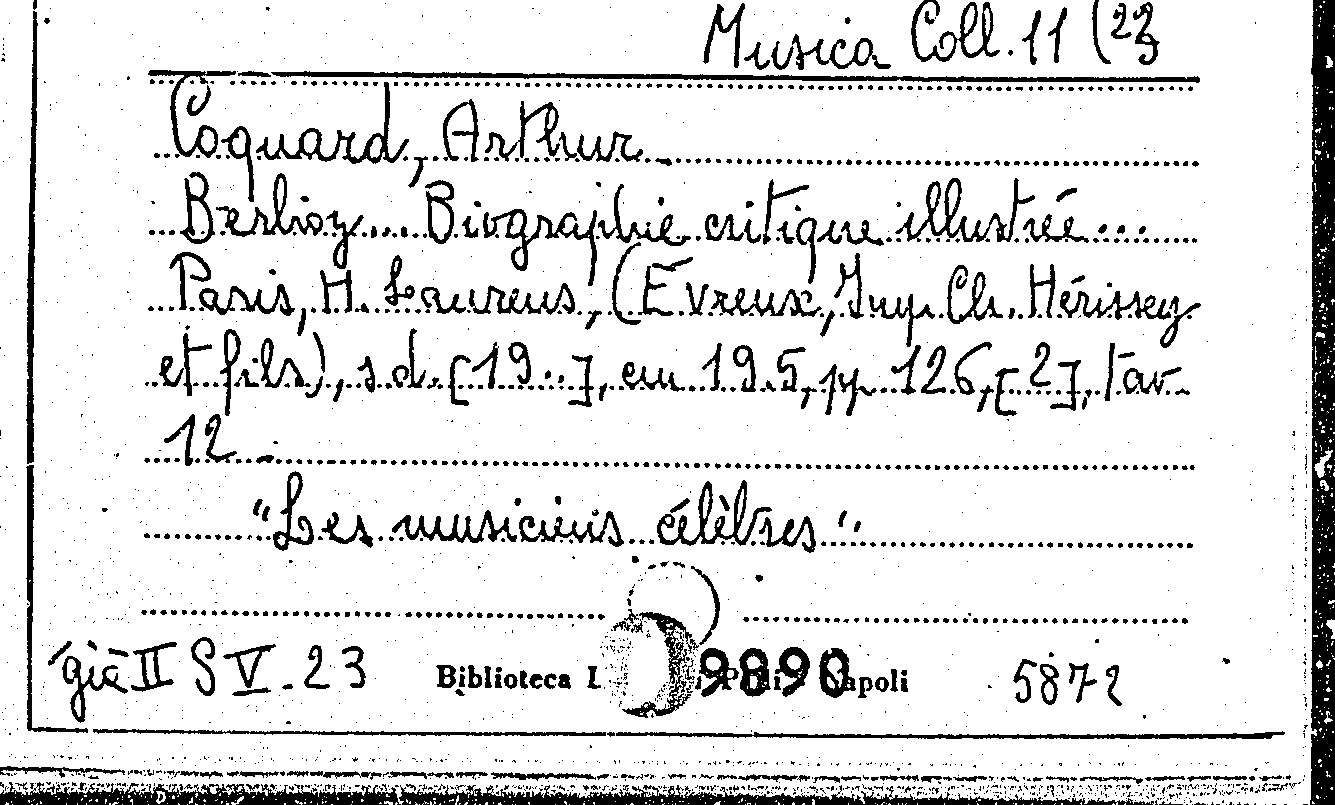 Musica Coll. 11 (23
Coquard, Arthur
Berlioz... Biographie critique illustrée...
Paris, H. Laurens, (Évreux, Imp. Ch. Hérissey
et fils), s.d. [19..], cm 19.5, pp. 126, [2], tav.
12 -
"Les musiciens célèbres".
già II S V. 23 Biblioteca 9890 Napoli 5872